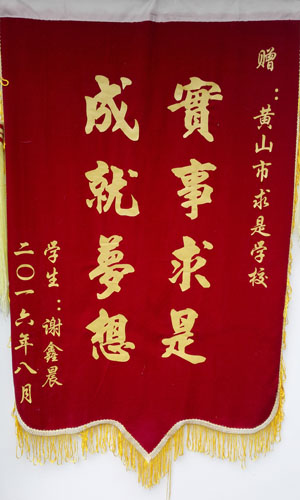 赠：黄山市求是学校
實事求是
成就夢想
学生：谢鑫晨
二〇一六年八月